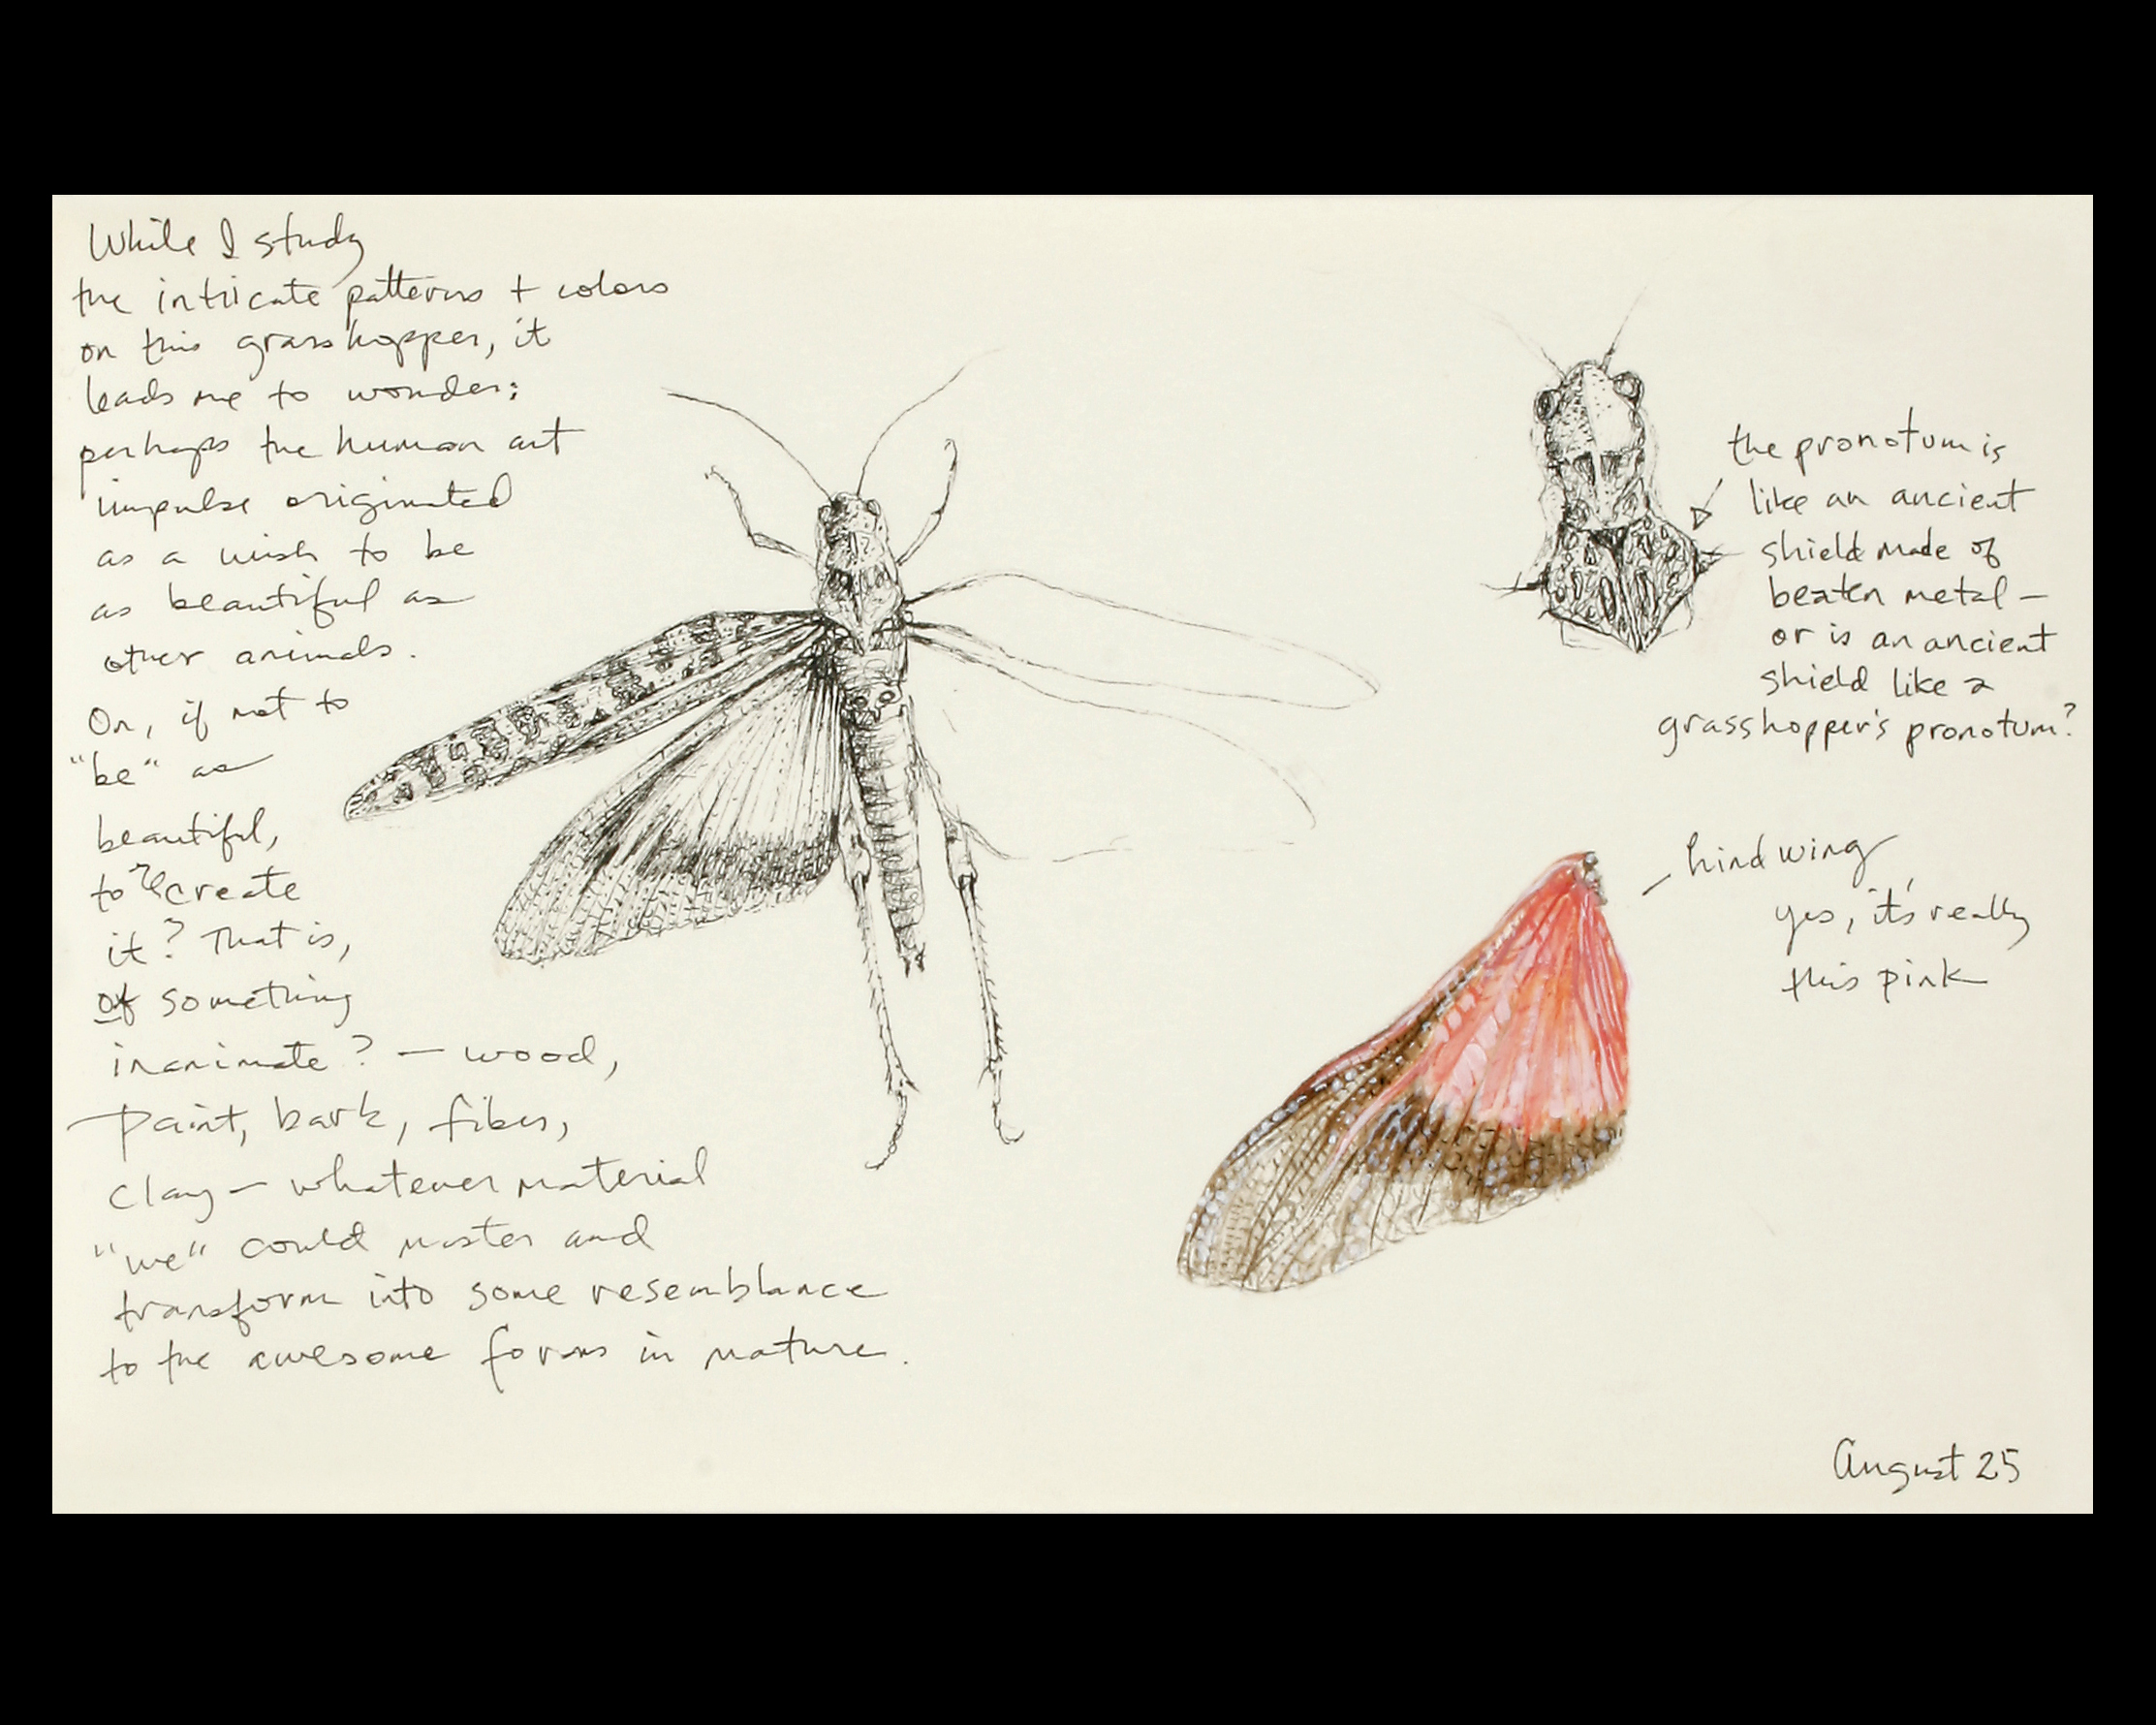 While I study
the intricate patterns + colors
on this grasshopper, it
leads me to wonder:
perhaps the human art
impulse originated
as a wish to be
as beautiful as
other animals.
Or, if not to
"be" as
beautiful,
to recreate
it? That is,
of something
inanimate? — wood,
paint, bark, fiber,
clay — whatever material
"we" could master and
transform into some resemblance
to the awesome forms in nature.
the pronotum is
like an ancient
shield made of
beaten metal —
or is an ancient
shield like a
grasshopper's pronotum?
hind wing
yes, it's really
this pink
August 25